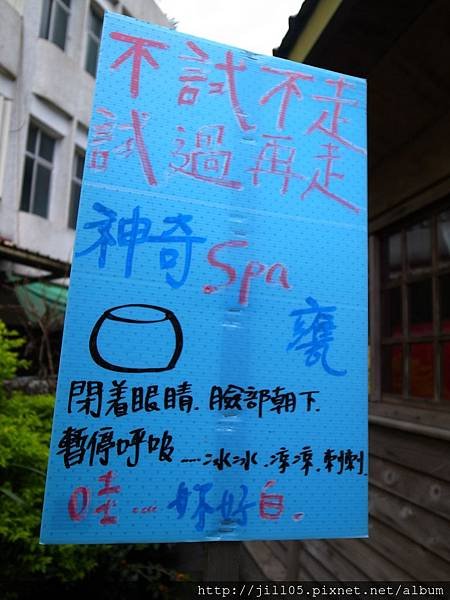 不試不走
試過再走
神奇Spa
甕
閉着眼睛.臉部朝下.
暫停呼吸....冰冰.涼涼.刺刺.
哇....妳好白.
http://jill105.pixnet.net/album